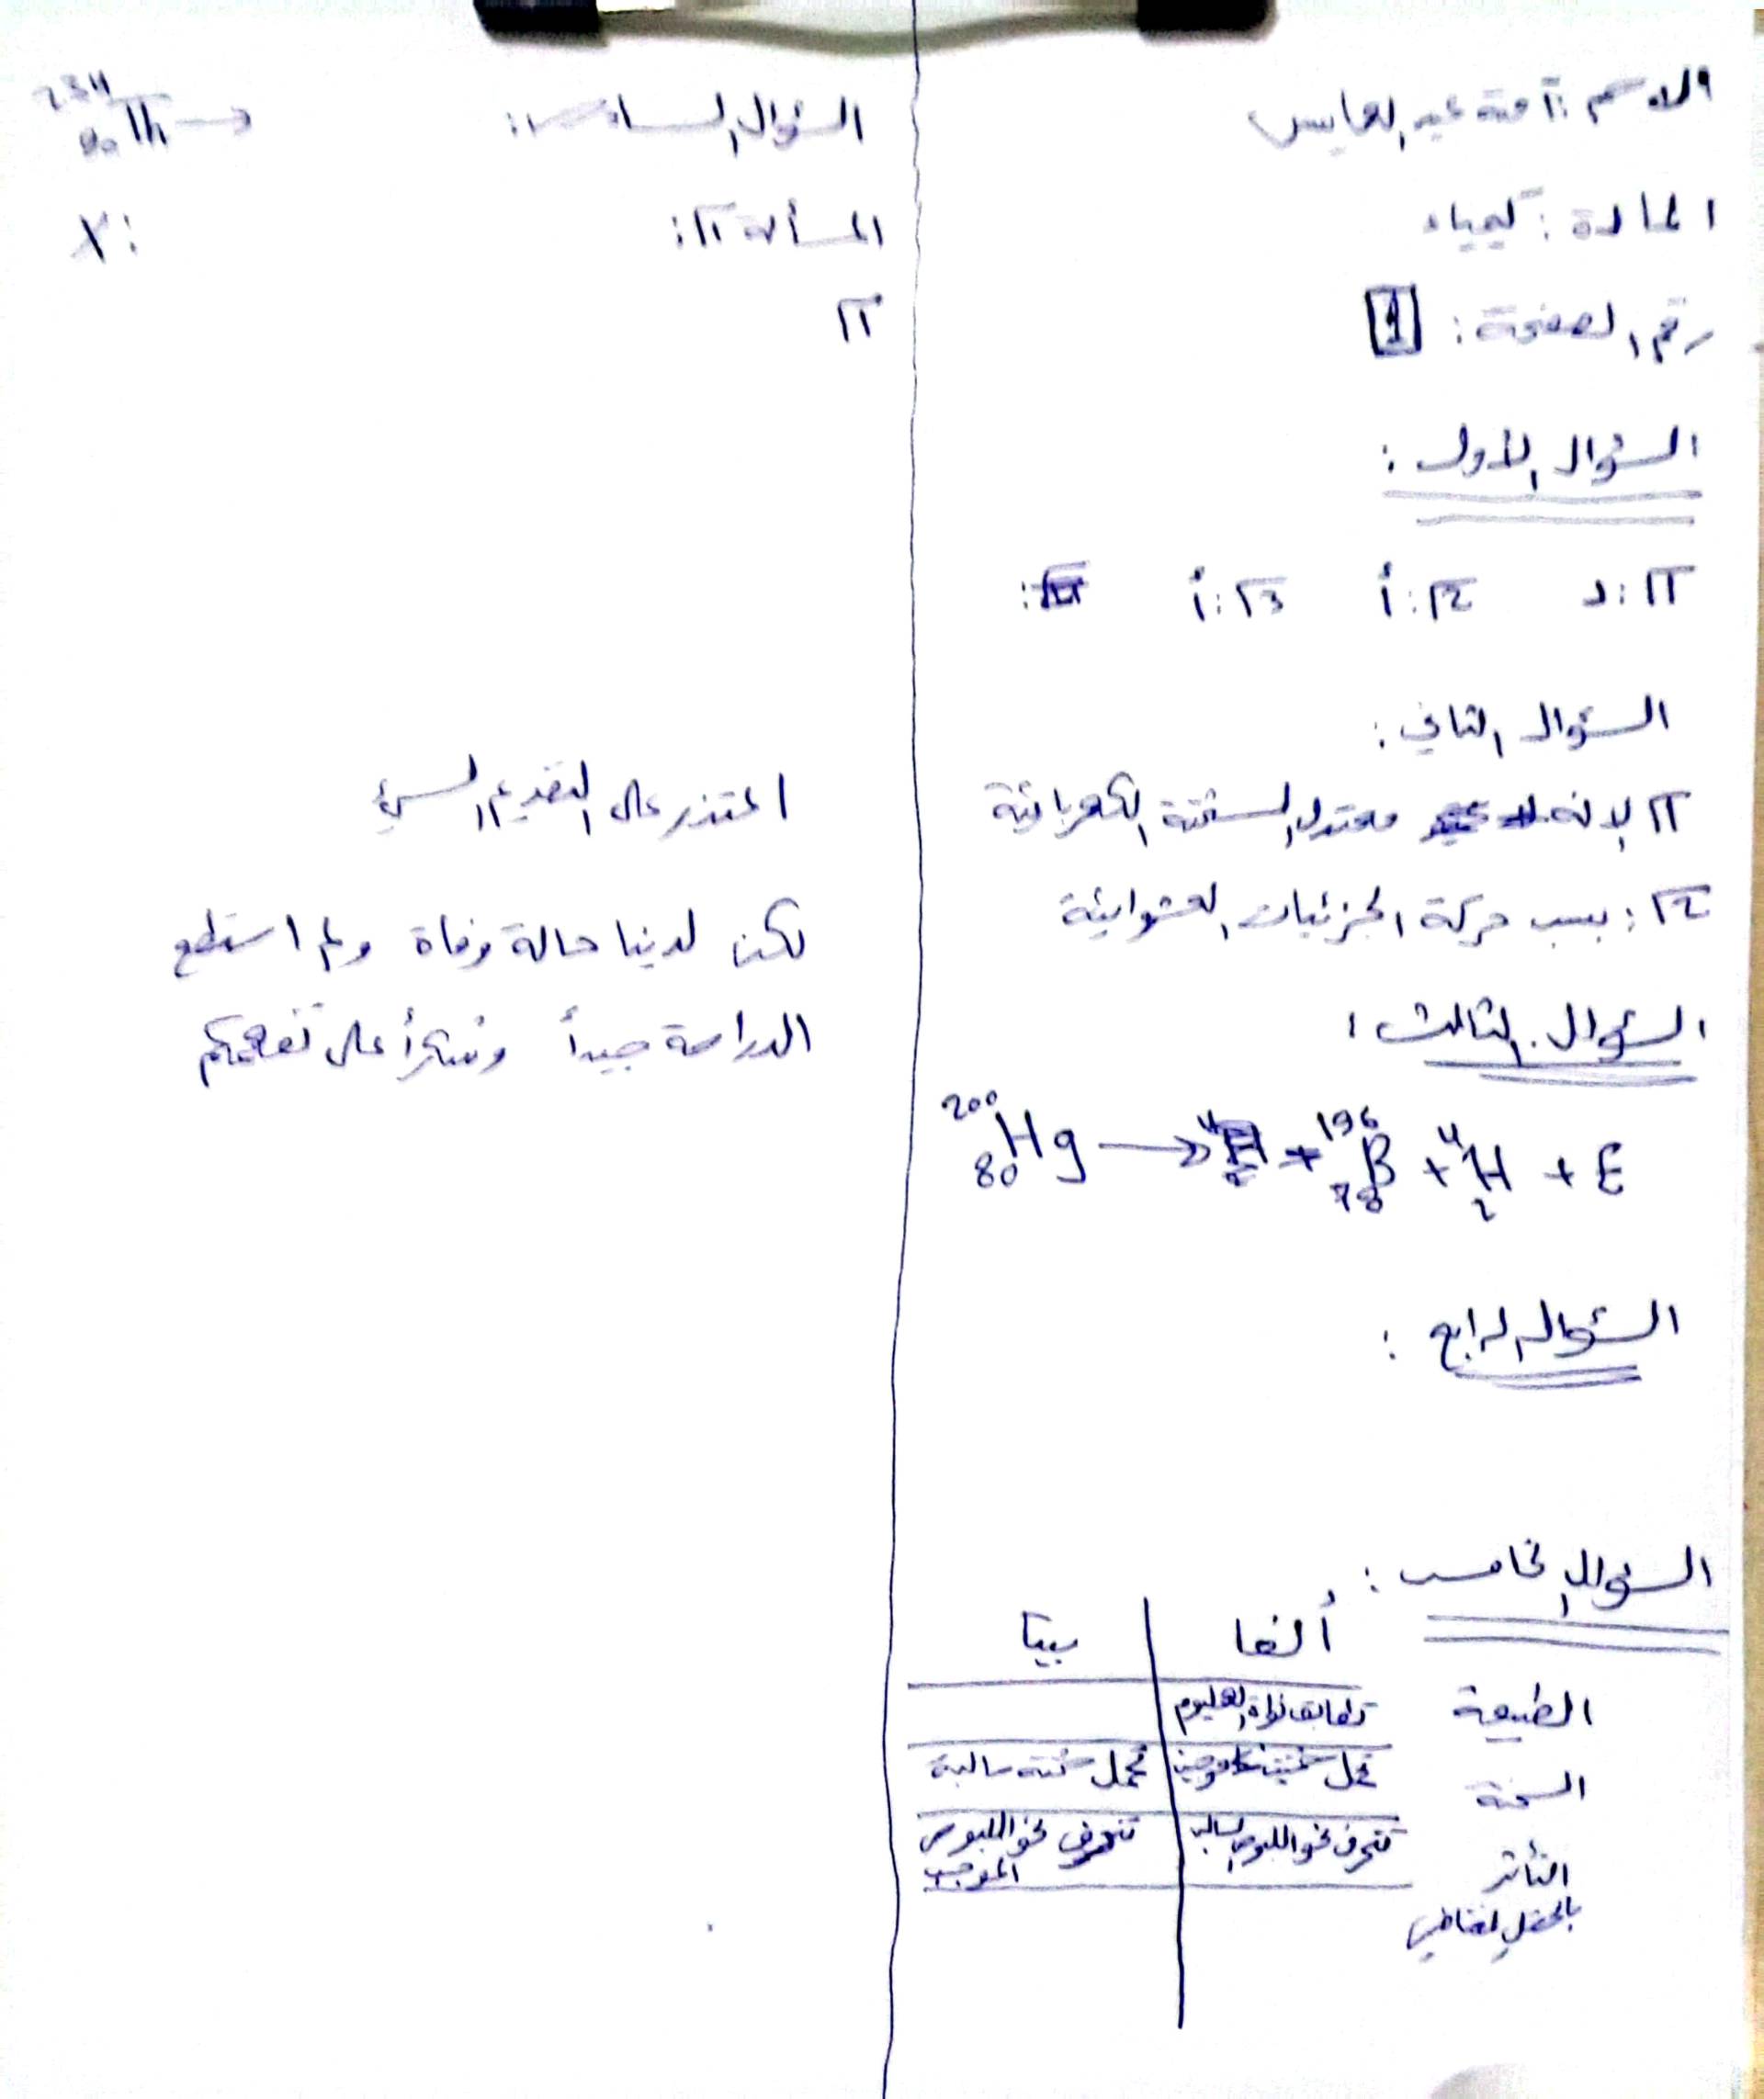 الاسم: آمنة عبد العايس
المادة: كيمياء
رقم الصفحة: 1
السؤال الأول:
1: د 2: أ 3: أ
السؤال الثاني:
1 لإنه معتدل الشحنة الكهربائية
2: بسبب حركة الجزئيات العشوائية
السؤال الثالث:
²⁰⁰₈₀Hg → + ¹⁹⁶₇₈B + ⁴₂H + E
السؤال الرابع:
السؤال الخامس:
ألفا بيتا
الطبيعة تطابق نواة الهليوم
الشحنة تحمل شحنتين تحمل شحنة سالبة
التأثر بالحقل المغناطيسي تنحرف نحو اللبوس السالب تنحرف نحو اللبوس الموجب
السؤال السادس: ²³⁴₉₀Th →
المسألة 1: X:
1
اعتذر على التقديم السيئ
لكن لدينا حالة وفاة ولم استطع
الدراسة جيداً وشكراً على تفهمكم